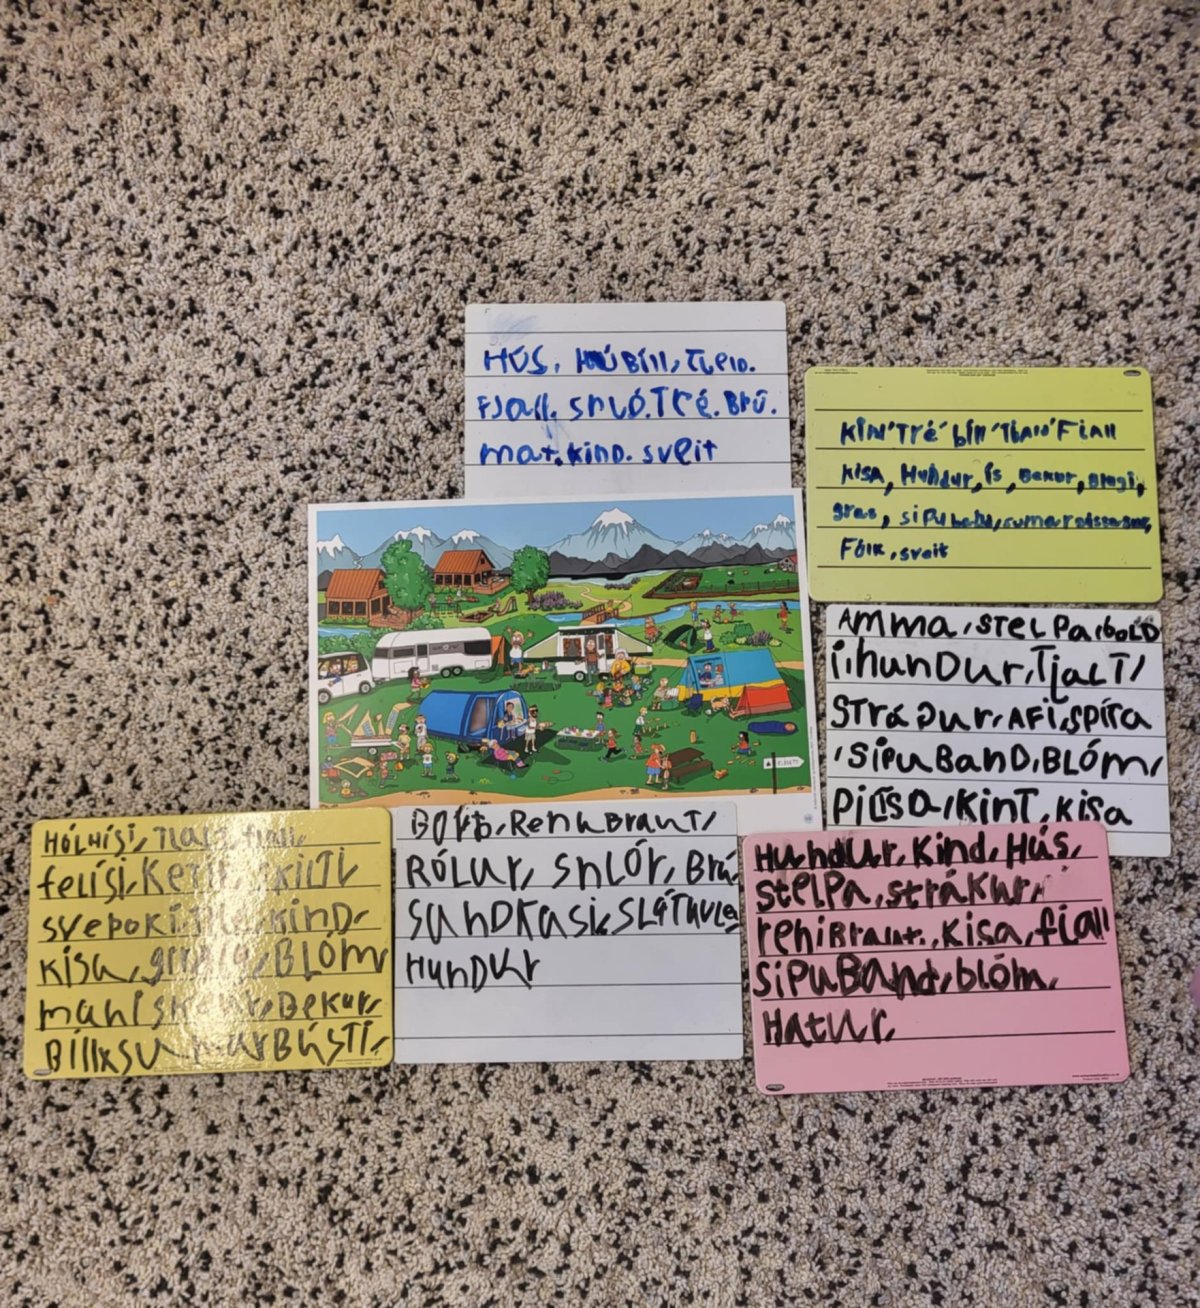 HÚS, HÚBíll, TJelD.
FJall. snló. Tré. Brú.
mat. kind. sveit
KIN'Tré'bíll'TJald'Fiall
KISA, Hundur, ís, Bekur,
gras, sipubabd,
Fólk, sveit
AMMA, STELPA, BOLD
i, hunDur, TJaLT,
STráDur, AFi, SPíra
, SiPuBanD, BLÓM,
PiLSa, KinT, KiSa
HÓLHÍSI, TJalT, fJall,
felísi, KeTL
svepoKi, KinD,
Kisa, BLÓM
BeKur,
BíllxsumarBúSTI,
BORÐ, RenuBrauT,
RÓLur, snLór, Brú
SandKasi, SLáTuvle
HunDur
Hundur, Kind, HÚS,
STelpa, strákur,
reniBraut, Kisa, fiall
SipuBAnd, blóm,
Hatur,